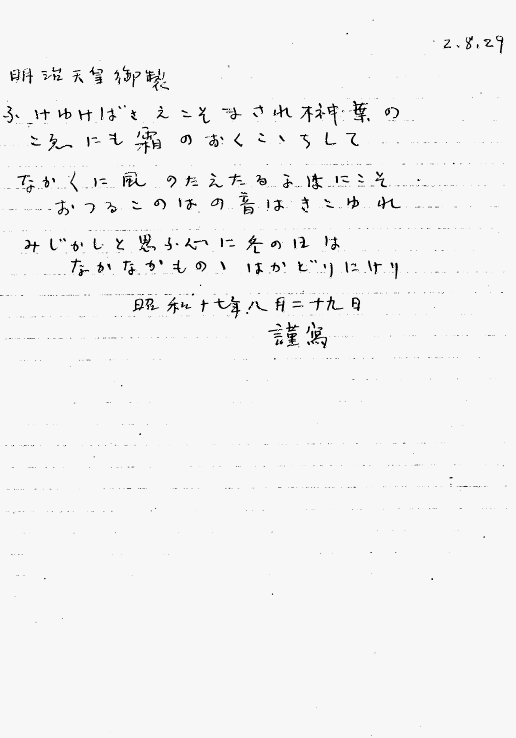 2.8.29
明治天皇御製
ふけゆけばさえこそまされ榊葉の
こゑにも霜のおくこゝちして
なかくに風のたえたる子はにこそ
おつるこのはの音はきこゆれ
みじかしと思ふ心に冬のほは
なかなかものゝはかどりにけり
昭和十七年八月二十九日
謹写